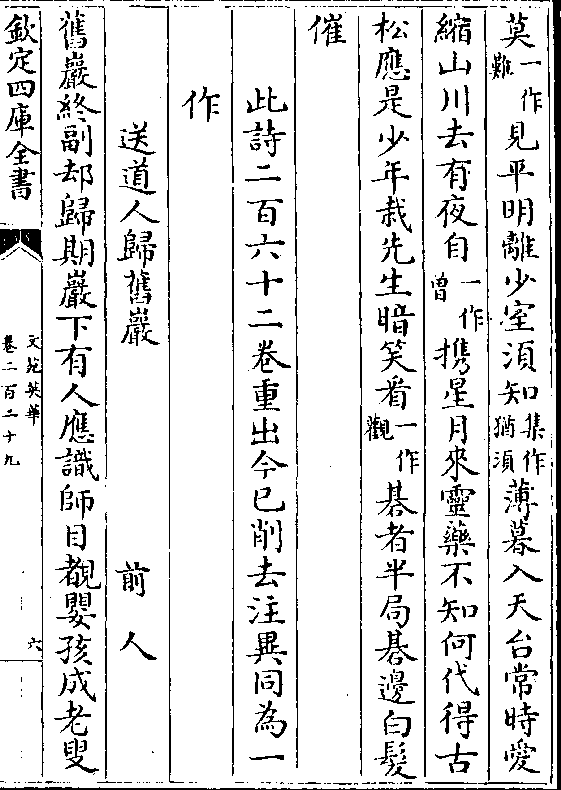 莫一作難見平明離少室須知集作猶須薄暮入天台常時愛
縮山川去有夜自一作曽攜星月來靈藥不知何代得古
松應是少年栽先生暗笑看一作觀棊者半局棊邊白髪
催
此詩二百六十二卷重出今已削去注異同為一
作
送道人歸舊巖 前人
舊巖終副却歸期巖下有人應識師目覩嬰孩成老叟
欽定四庫全書
文苑英華
卷二百二十九
六